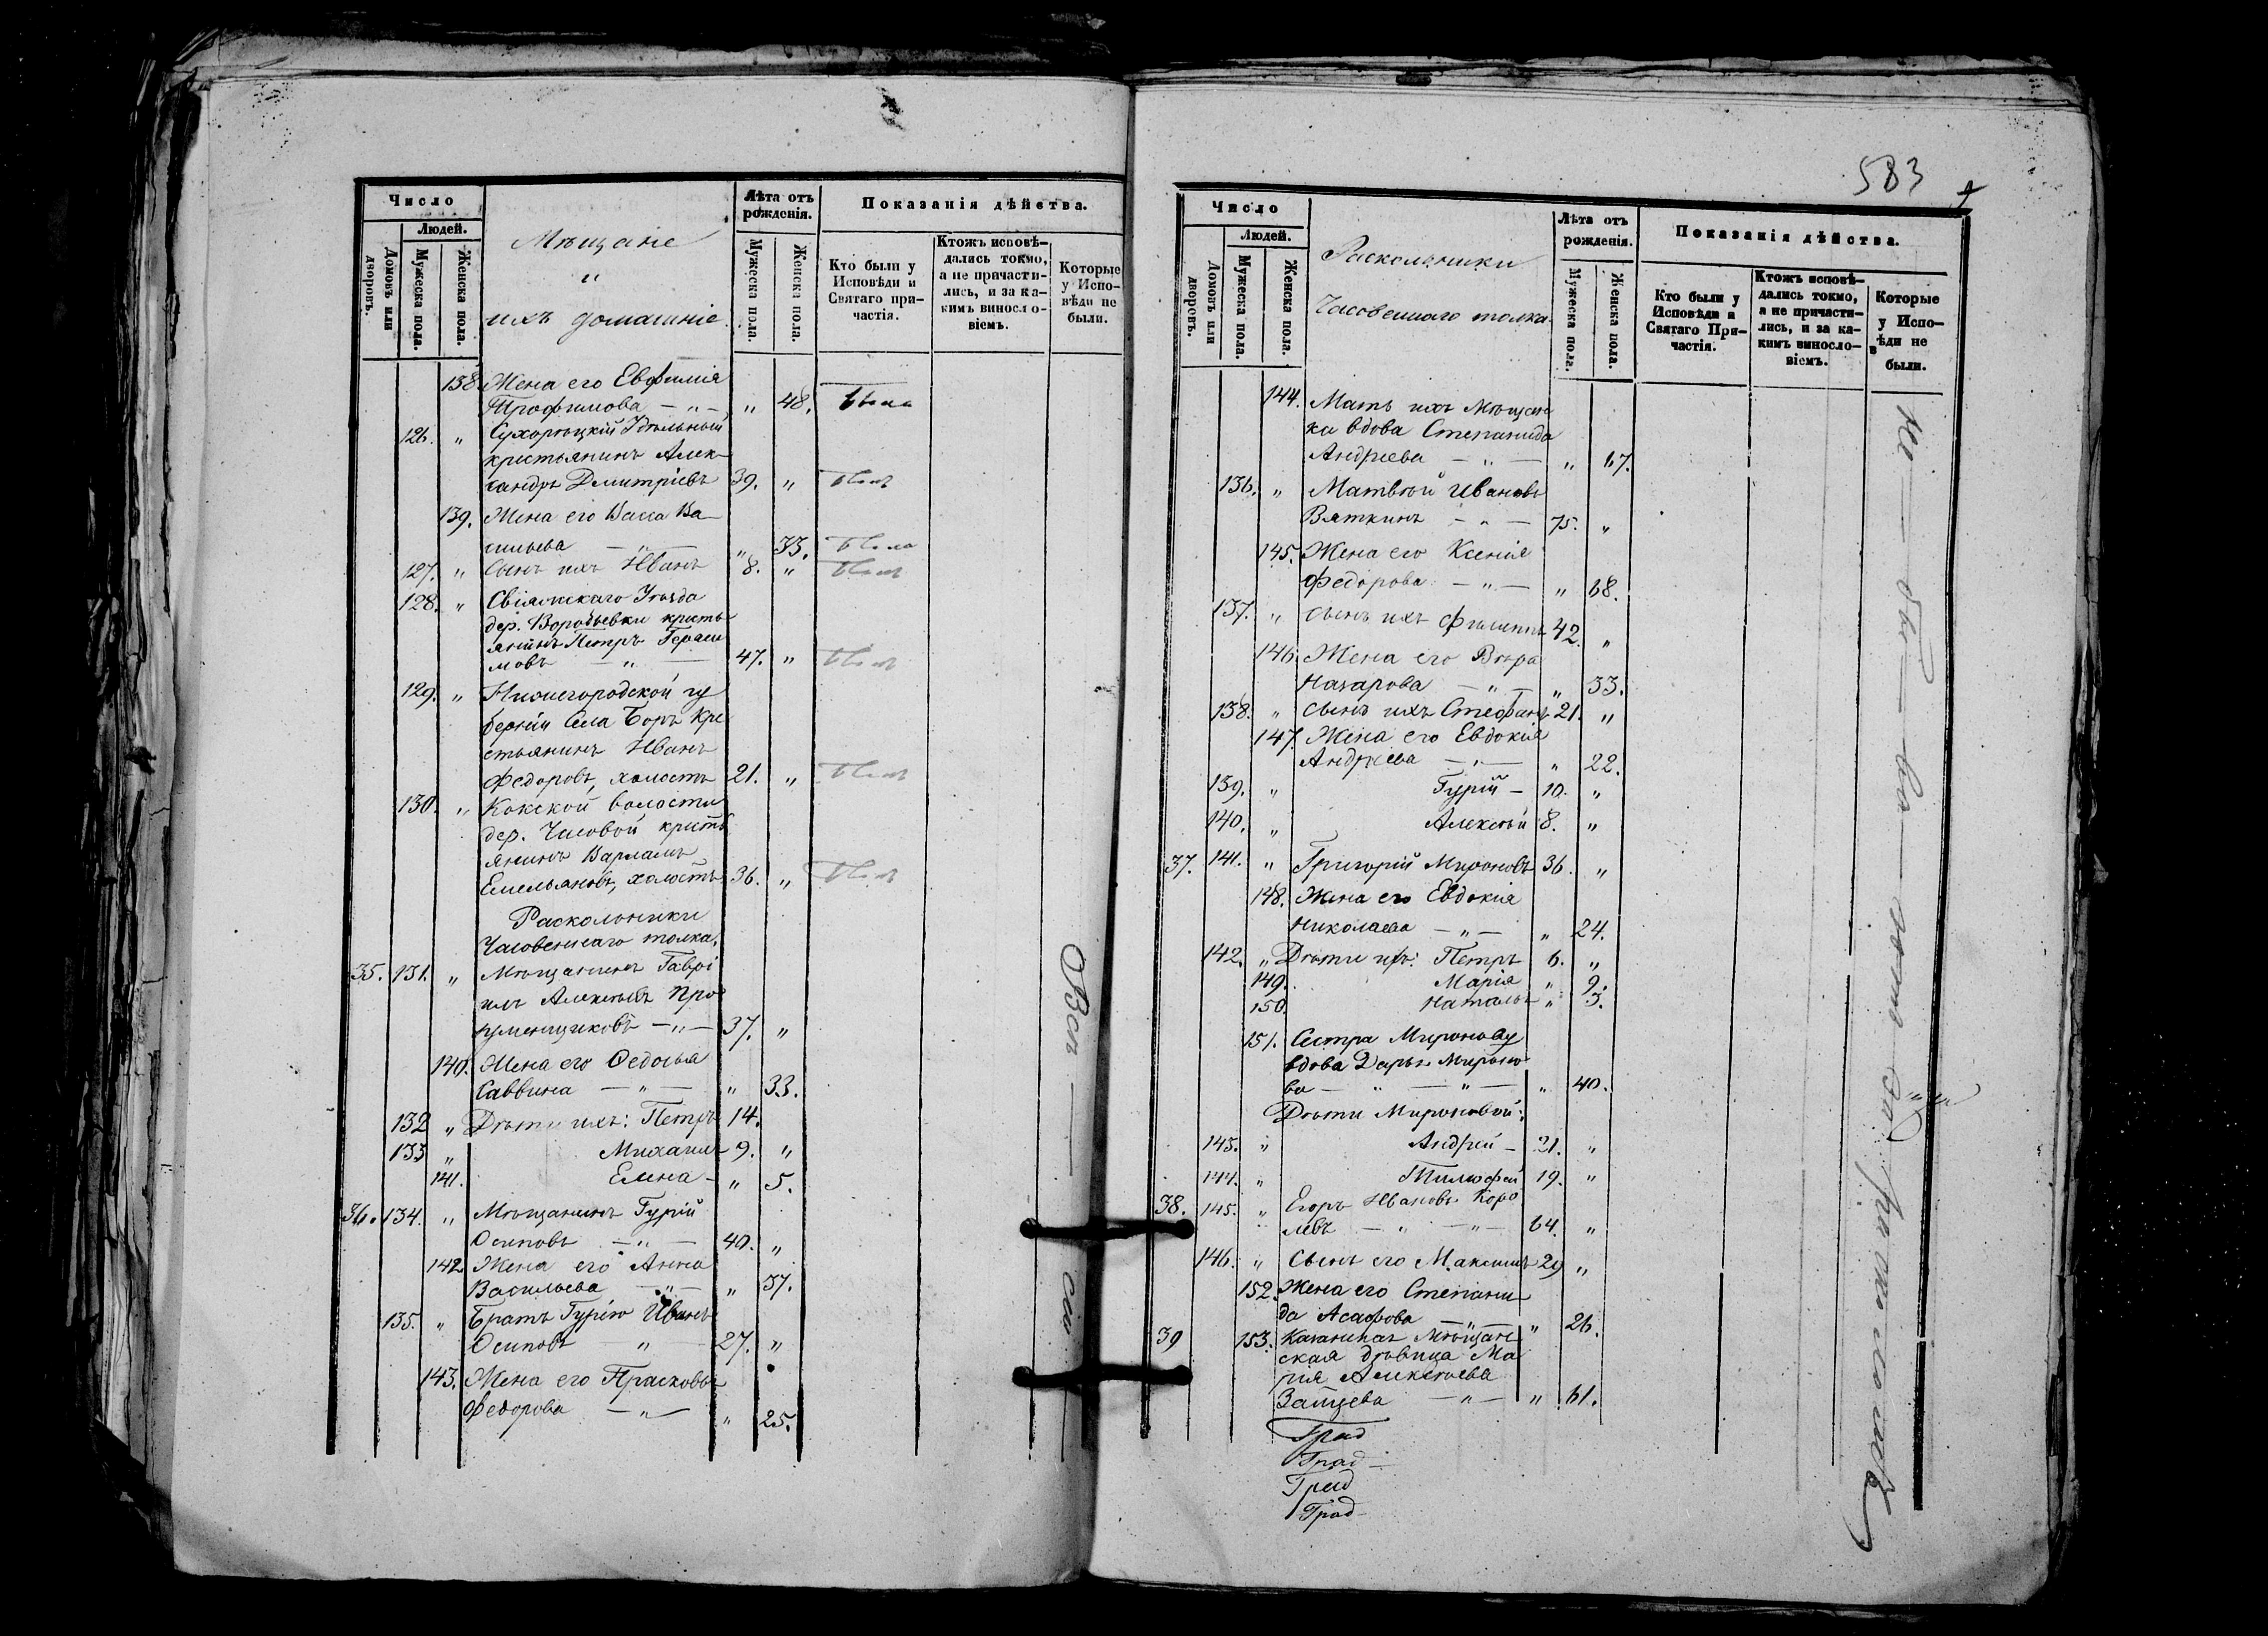 Число
Людей.
Домовъ или дворовъ.
Мужеска пола.
Женска пола.
Мѣщаніе
и
ихъ домашніе.
Лѣта отъ рожденія.
Мужеска пола.
Женска пола.
Показанія дѣйства.
Кто были у Исповѣди и Святаго при-
частія.
Ктожъ исповѣ-
дались токмо,
а не причасти-
лись, и за ка-
кимъ винослo-
віемъ.
Которые
у Испо-
вѣди не
были.
138. Жена его Евфимія
Трофимова — „ — „ 48. была
126. „ Удѣльный
крестьянинъ Алек-
сандръ Димитріевъ 39. „ былъ
139. Жена его Васса Ва-
сильева — „ — „ 33. была
127. „ Сынъ ихъ Иванъ 8. „ былъ
128. „ Свіяжскаго Уѣзда
дер. Воробьевки кресть
янинъ Петръ Гераси
мовъ — „ — 47. „ былъ
129. „ Нижегородской гу
берніи Села Боръ Кре
стьянинъ Иванъ
Федоровъ, холостъ 21. „ былъ
130. „ Кокской волости
дер. Чисовой кресть
янинъ Варламъ
Емельяновъ, холостъ 36. „ былъ
Раскольники
Часовеннаго толка.
35. 131. „ Мѣщанинъ Гаврі
илъ Алексѣевъ Про
— „ — 37. „
140. Жена его Ѳедосья
Саввина — „ — „ 33.
132 „ Дѣти ихъ: Петръ 14.
133 „ Михаилъ 9. „
141. Елена — „ 5.
36. 134. „ Мѣщанинъ Гурій
Осиповъ — „ — 40. „
142. Жена его Анна
Васильева — „ — „ 37.
135. „ Братъ Гурію Иванъ
Осиповъ „ 27. „
143. Жена его Прасковья
Федорова — „ — „ 25.
Всѣ — сіи
583
Число
Людей.
Домовъ или дворовъ.
Мужеска пола.
Женска пола.
Раскольники
Часовеннаго толка.
Лѣта отъ рожденія.
Мужеска пола.
Женска пола.
Показанія дѣйства.
Кто были у
Исповѣди и
Святаго При-
частія.
Ктожъ исповѣ-
дались токмо,
а не причасти-
лись, и за ка-
кимъ виносло-
віемъ.
Которые
у Испо-
вѣди не
были.
144. Мать ихъ Мѣщан
ка вдова Степанида
Андреева — „ — „ 67.
136. „ Матвѣй Ивановъ
Вяткинъ — „ — 75. „
145. Жена его Ксенія
Федорова — „ — „ 68.
137. „ сынъ ихъ Филиппъ 42. „
146. Жена его Вѣра
Назарова — „ — „ 33.
138. „ сынъ ихъ Стефанъ 21. „
147. Жена его Евдокія
Андреева — „ — „ 22.
139. „ Гурій — 10. „
140. „ Алексѣй 8. „
37. 141. „ Григорій Мироновъ 36. „
148. Жена его Евдокія
Николаева — „ — „ 24.
142. „ Дѣти ихъ: Петръ 6. „
149. Марія „ 9.
150. Наталья „ 3.
151. Сестра Миронову
вдова Дарья Мироно
ва — „ — „ — „ 40.
Дѣти Мироновой:
143. „ Андрей — 21. „
144. „ Тимофей 19. „
38. 145. „ Егоръ Ивановъ Коро
левъ — „ — „ — 64. „
146. „ Сынъ его Максимъ 29 „
152. Жена его Степани
да Асафова — „ — „ 26.
39 153. Казанская Мѣщан
ская дѣвица Ма
рія Алексѣева
Зайцева — „ — „ 61.
Град
Град
Град
Град
не — бы — ва — ютъ за расколомъ